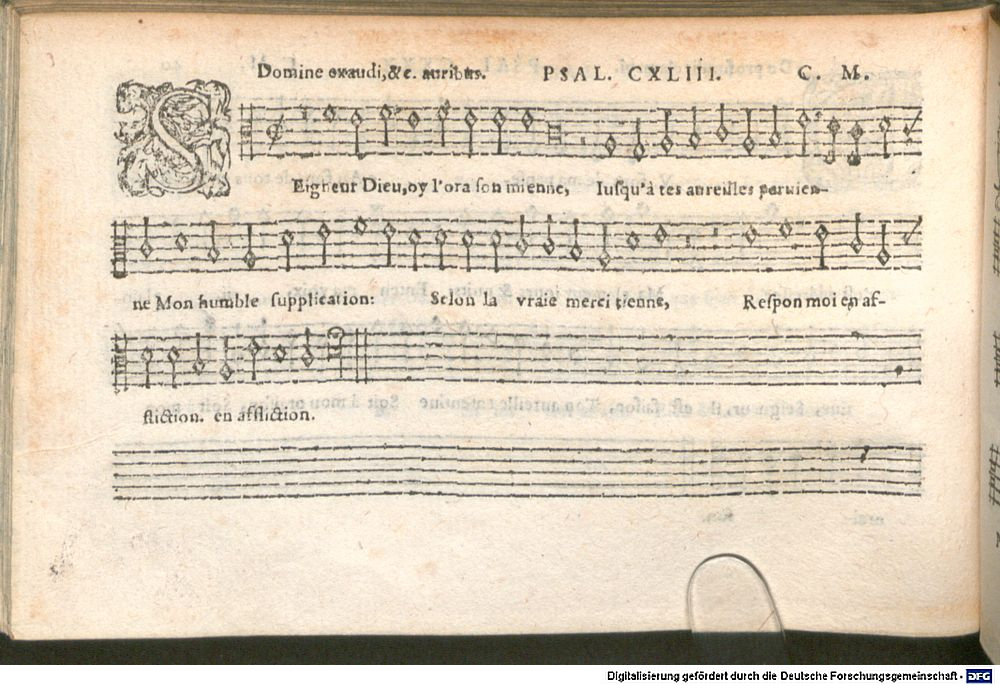 Domine exaudi,&c. auribus. PSAL. CXLIII. C. M.
SEigneur Dieu,oy l'oraison mienne, Iusqu'à tes aureilles paruien-
ne Mon humble supplication: Selon la vraie merci tienne, Respon moi en af-
fliction. en affliction.
Digitalisierung gefördert durch die Deutsche Forschungsgemeinschaft - DFG